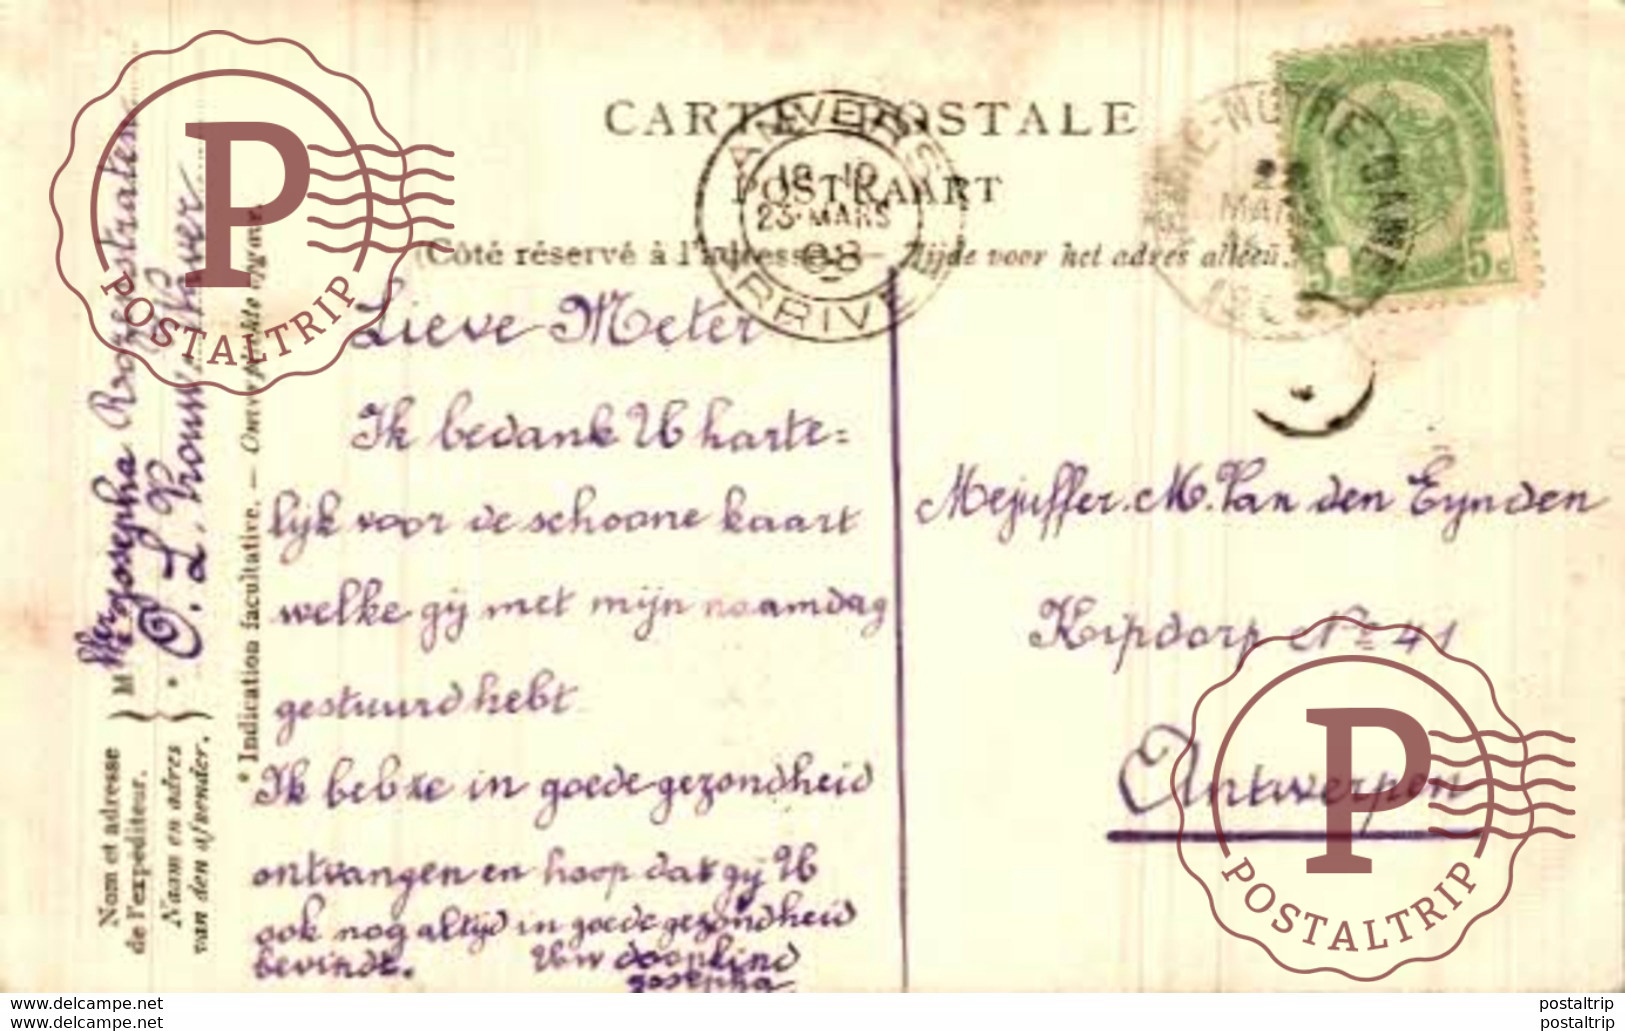 CARTE POSTALE
POSTKAART
(Côté réservé à l'adresse) — Zijde voor het adres alleen.
ANVERS
18-19
23 MARS
08
ARRIVEE
IE-NOTRE-DAME
MAR
5c 5c
Lieve Meter
Ik bedank U harte=
lijk voor de schoone kaart
welke gij met mijn naamdag
gestuurd hebt
Ik heb ze in goede gezondheid
ontvangen en hoop dat gij U
ook nog altijd in goede gezondheid
bevindt. Uw doopkind
Josepha
Mejuffer. M. Van den Eynden
Kipdorp No 41
Antwerpen
Josepha
O. L. Vrouw
Nom et adresse
de l'expéditeur.
Naam en adres
van den afzender.
M
* Indication facultative. —
P
POSTALTRIP
P
POSTALTRIP
www.delcampe.net postaltrip
www.delcampe.net postaltrip